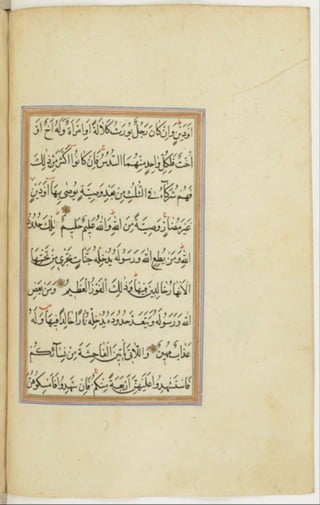 اَوْ دَيْنٍ وَاِنْ كَانَ رَجُلٌ يُورَثُ كَلَالَةً اَوِ امْرَاَةٌ وَلَهُ اَخٌ اَوْ
اُخْتٌ فَلِكُلِّ وَاحِدٍ مِنْهُمَا السُّدُسُ فَاِنْ كَانُوا اَكْثَرَ مِنْ ذٰلِكَ
فَهُمْ شُرَكَاءُ فِى الثُّلُثِ مِنْ بَعْدِ وَصِيَّةٍ يُوصٰى بِهَا اَوْ دَيْنٍ
غَيْرَ مُضَارٍّ وَصِيَّةً مِنَ اللّٰهِ وَاللّٰهُ عَلِيمٌ حَلِيمٌ تِلْكَ حُدُودُ
اللّٰهِ وَمَنْ يُطِعِ اللّٰهَ وَرَسُولَهُ يُدْخِلْهُ جَنَّاتٍ تَجْرِى مِنْ تَحْتِهَا
الْاَنْهَارُ خَالِدِينَ فِيهَا وَذٰلِكَ الْفَوْزُ الْعَظِيمُ وَمَنْ يَعْصِ
اللّٰهَ وَرَسُولَهُ وَيَتَعَدَّ حُدُودَهُ يُدْخِلْهُ نَارًا خَالِدًا فِيهَا وَلَهُ
عَذَابٌ مُهِينٌ وَالّٰتِى يَاْتِينَ الْفَاحِشَةَ مِنْ نِسَائِكُمْ
فَاسْتَشْهِدُوا عَلَيْهِنَّ اَرْبَعَةً مِنْكُمْ فَاِنْ شَهِدُوا فَاَمْسِكُوهُنَّ